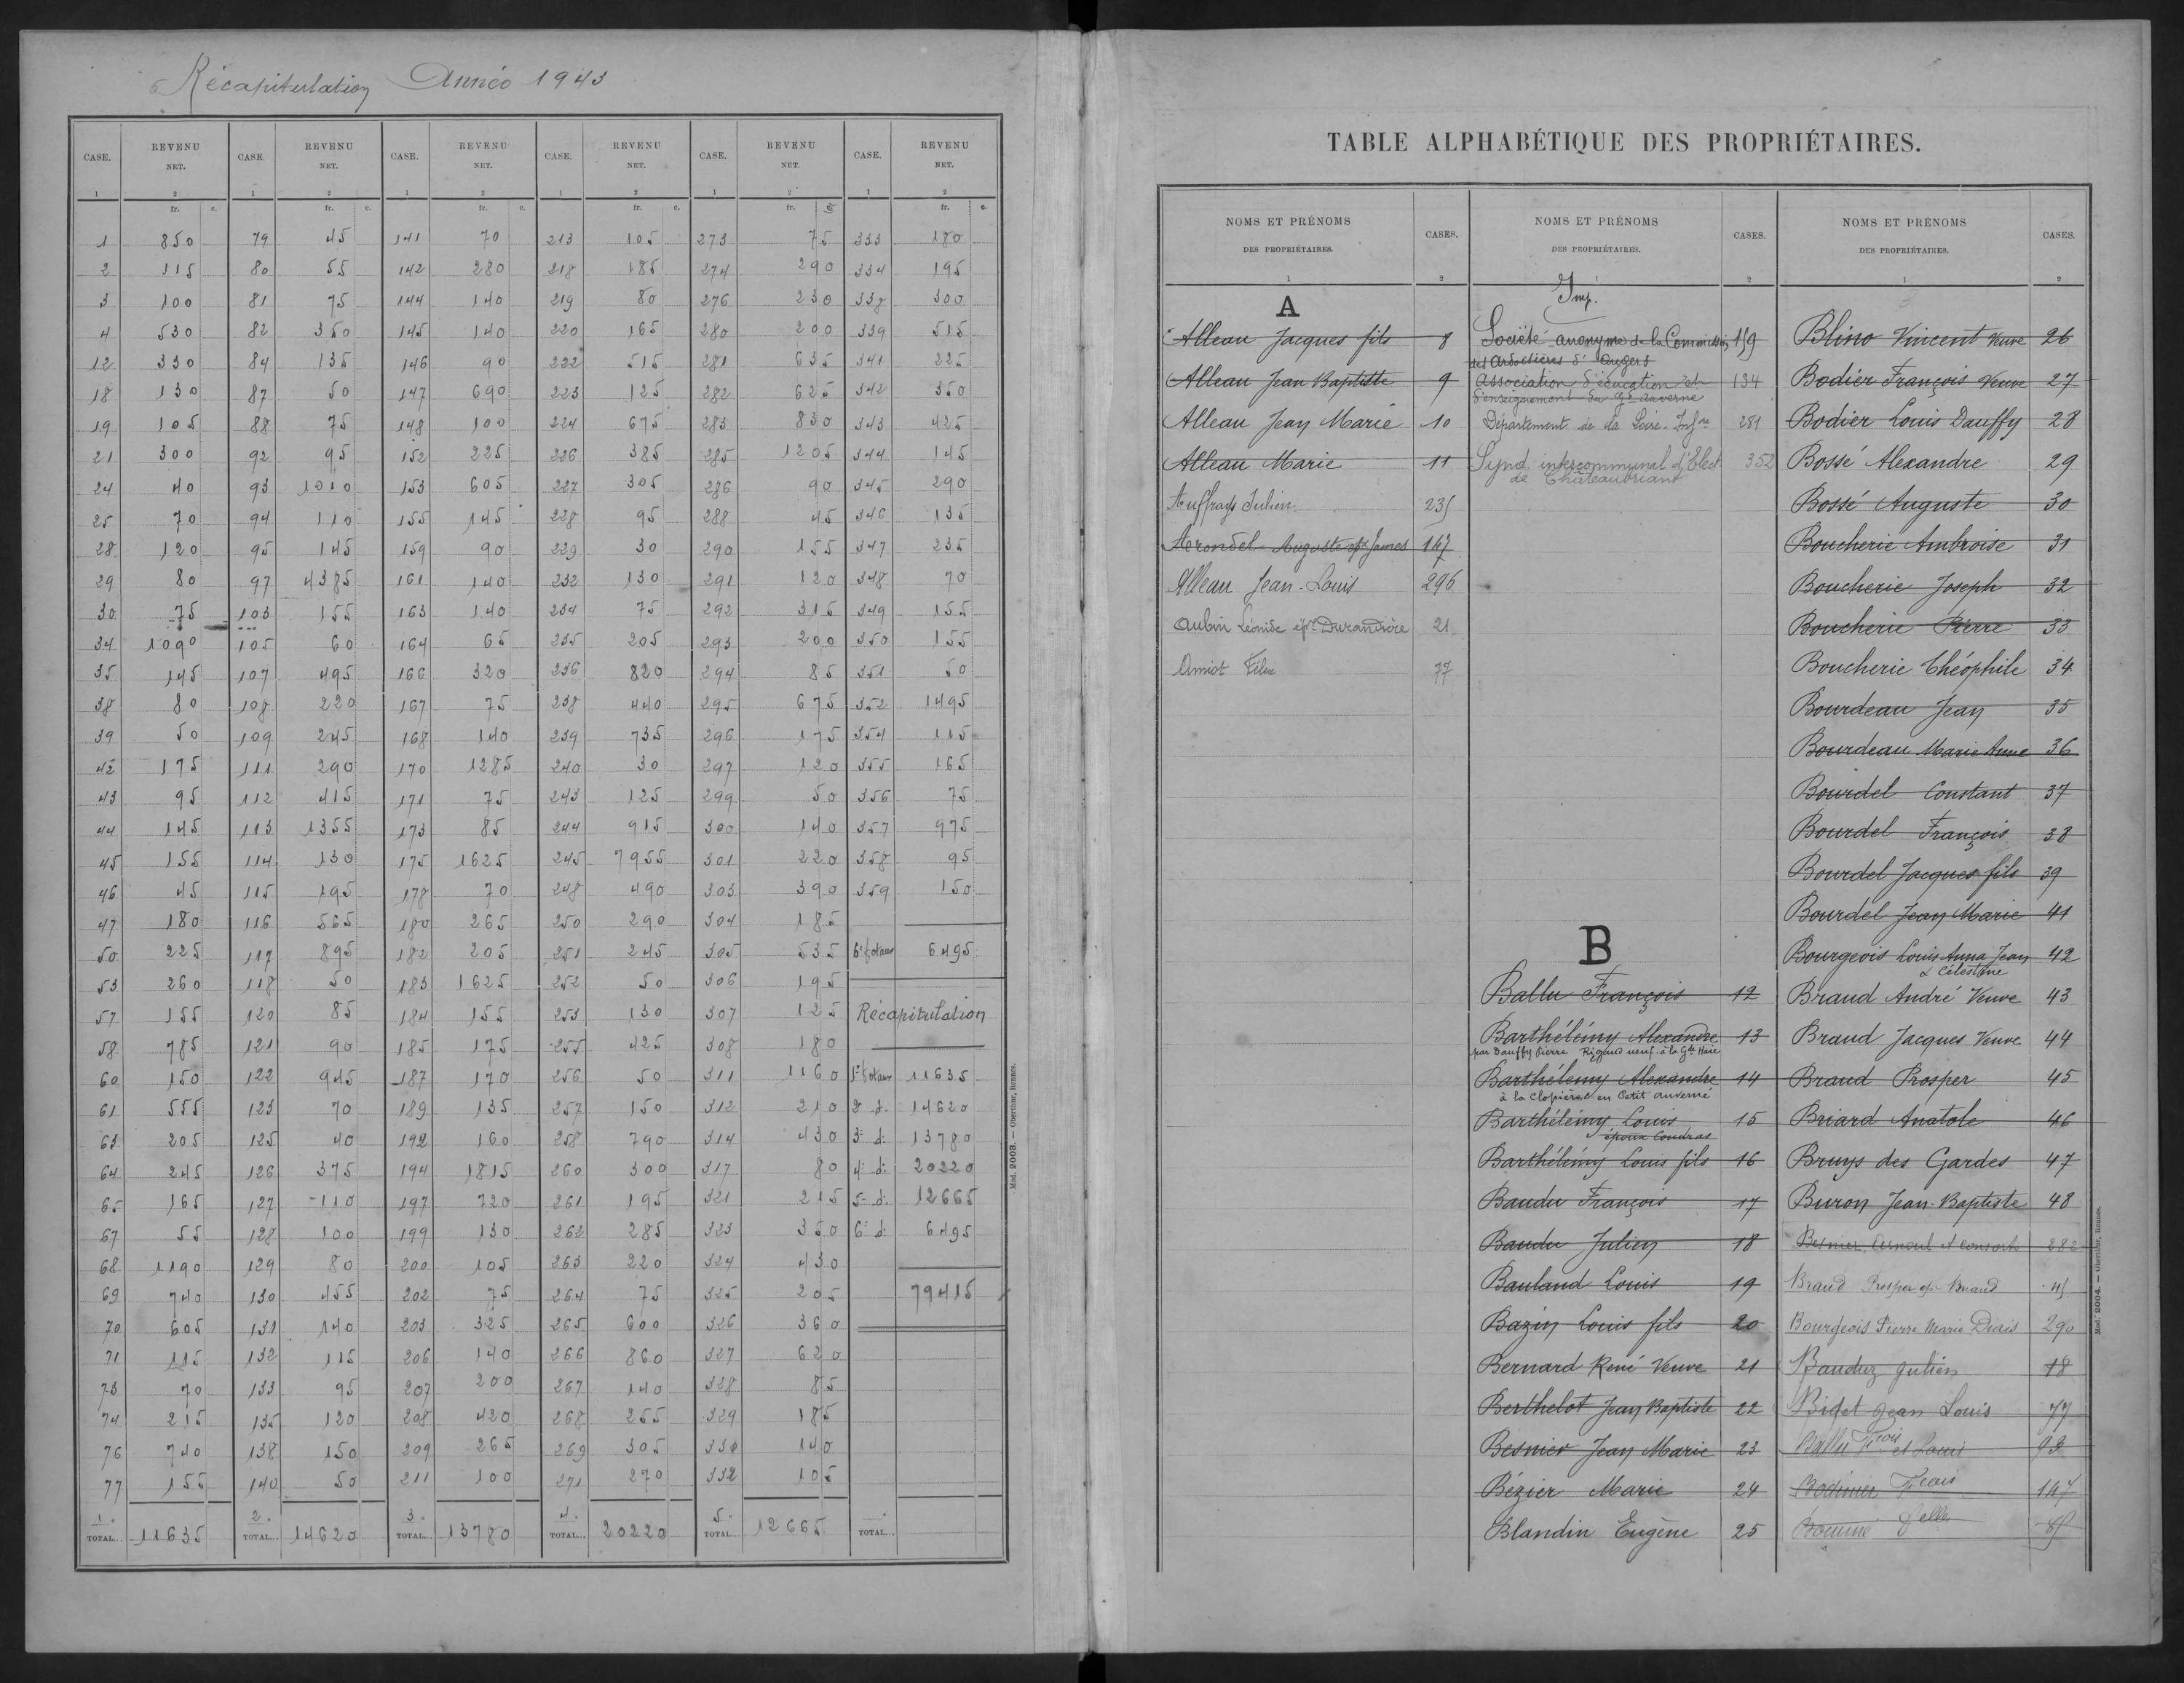 Récapitulation Année 1943
CASE. REVENU NET. CASE. REVENU NET. CASE. REVENU NET. CASE. REVENU NET. CASE. REVENU NET. CASE. REVENU NET.
1 2 1 2 1 2 1 2 1 2 1 2
fr. c. fr. c. fr. c. fr. c. fr. c. fr. c.
1 850 79 45 141 70 213 105 273 75 333 180
2 115 80 55 142 280 218 185 274 290 334 195
3 100 81 75 144 140 219 80 276 230 338 300
4 530 82 350 145 140 220 165 280 200 339 515
12 330 84 135 146 90 222 515 281 635 341 225
18 130 87 50 147 690 223 125 282 625 342 350
19 105 88 75 148 100 224 675 283 830 343 425
21 300 92 95 152 225 226 385 285 1205 344 145
24 40 93 1010 153 605 227 305 286 90 345 290
25 70 94 110 155 145 228 95 288 45 346 135
28 120 95 145 159 90 229 30 290 155 347 235
29 80 97 4385 161 140 232 130 291 120 348 70
30 75 103 155 163 140 234 75 292 315 349 155
34 1090 105 60 164 65 235 205 293 200 350 155
35 145 107 495 166 320 236 820 294 85 351 50
38 80 108 220 167 75 238 440 295 675 352 1495
39 50 109 245 168 140 239 735 296 175 354 115
42 175 111 290 170 1285 240 30 297 120 355 165
43 95 112 415 171 75 243 125 299 50 356 75
44 145 113 1355 173 85 244 915 300 140 357 975
45 155 114 130 175 1625 245 7955 301 220 358 95
46 45 115 195 178 70 248 490 303 390 359 150
47 180 116 565 180 265 250 290 304 185
50 225 117 895 182 205 251 245 305 535 6e totaux 6495
53 260 118 50 183 1625 252 50 306 195
57 155 120 85 184 155 253 130 307 125 Récapitulation
58 785 121 90 185 175 255 425 308 180
60 150 122 945 187 170 256 50 311 1160 1er totaux 11635
61 555 123 70 189 135 257 150 312 210 2e d: 14620
63 205 125 40 192 160 258 790 314 430 3e d: 13780
64 245 126 375 194 1815 260 300 317 80 4e d: 20220
65 165 127 110 197 720 261 195 321 215 5e d: 12665
67 55 128 100 199 130 262 285 323 350 6e d: 6495
68 1190 129 80 200 105 263 220 324 430
69 740 130 455 202 75 264 75 325 205 79415
70 605 131 140 203 325 265 600 326 360
71 115 132 115 206 140 266 860 327 620
73 70 133 95 207 200 267 140 328 85
74 215 135 120 208 420 268 255 329 185
76 740 138 150 209 265 269 305 330 140
77 155 140 50 211 100 271 270 332 105
1e TOTAL... 11635 2e TOTAL... 14620 3e TOTAL... 13780 4e TOTAL... 20220 5e TOTAL... 12665 TOTAL...
Mod. 2003. — Oberthur, Rennes.
TABLE ALPHABÉTIQUE DES PROPRIÉTAIRES.
NOMS ET PRÉNOMS DES PROPRIÉTAIRES. CASES. NOMS ET PRÉNOMS DES PROPRIÉTAIRES. CASES. NOMS ET PRÉNOMS DES PROPRIÉTAIRES. CASES.
1 2 1 2 1 2
A
Alleau Jacques fils 8
Alleau Jean Baptiste 9
Alleau Jean Marie 10
Alleau Marie 11
Auffrays Julien 235
Arondel Auguste ép. James 147
Alleau Jean-Louis 296
Aubin Léonide épse Durandière 21
Amiot Félix 77
Imp.
Société anonyme de la Commission 159
des Ardoisières d'Angers
Association d'éducation et 134
d'enseignement du Gd Auverné
Département de la Loire-Infre 281
Synd. intercommunal d'Elect 352
de Châteaubriant
B
Ballu François 12
Barthélémy Alexandre 13
par Dauffy Pierre Rigaud usuf. à la Gde Haie
Barthélemy Alexandre 14
à la Clopière en Petit Auverné
Barthélémy Louis 15
époux Coudras
Barthélémy Louis fils 16
Baudu François 17
Baudu Julien 18
Bauland Louis 19
Bazin Louis fils 20
Bernard René Veuve 21
Berthelot Jean Baptiste 22
Besnier Jean Marie 23
Bézier Marie 24
Blandin Eugène 25
Blino Vincent Veuve 26
Bodier François Veuve 27
Bodier Louis Dauffy 28
Bossé Alexandre 29
Bossé Auguste 30
Boucherie Ambroise 31
Boucherie Joseph 32
Boucherie Pierre 33
Boucherie Théophile 34
Bourdeau Jean 35
Bourdeau Marie Anne 36
Bourdel Constant 37
Bourdel François 38
Bourdel Jacques fils 39
Bourdel Jean Marie 41
Bourgeois Louis Anna Jean 42
& Célestine
Braud André Veuve 43
Braud Jacques Veuve 44
Braud Prosper 45
Briard Anatole 46
Bruys des Gardes 47
Buron Jean-Baptiste 48
Besnier Arnoul et consorts 282
Braud Prosper ép. Briand 45
Bourgeois Pierre Marie Diais 290
Bauduz Julien 18
Bidet Jean Louis 77
Ballu Frçois et Louis 93
Bodinier Fçois 147
Mod. 2004. — Oberthur, Rennes.